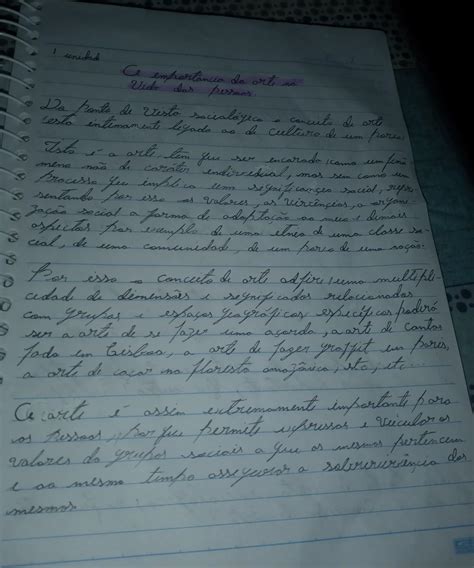 1 unidade
A importância da arte na
Vida das pessoas
Do Ponto de Vista sociológico o conceito de arte
esta intimamente ligado ao de Cultura de um povo.
Isto é a arte tem que ser encarado como um fenó
meno não de caráter individual, mas sem como um
Processo que implica um significançao social, repre
sentando por isso os valores, as vivências, a organi
zação social a forma de adaptação ao meio e demais
aspectos por exemplo de uma etnia de uma classe so
cial, de uma comunidade, de um povo de uma nação.
Por isso o conceito de arte adquire uma multipli
cidade de dimensões e significados relacionados
com grupos e espaços geográficos específicos poderá
ser a arte de se fazer uma açorda, a arte de cantar
fado em Lisboa, a arte de fazer graffit em Paris,
a arte de caçar na floresta amazônica, etc, etc...
A arte é assim extremamente importante para
as Pessoas, Porque permite expressar e Veicular os
Valores do grupos sociais a que os mesmos pertencem
e ao mesmo tempo assegurar a sobrevivência dos
mesmos.